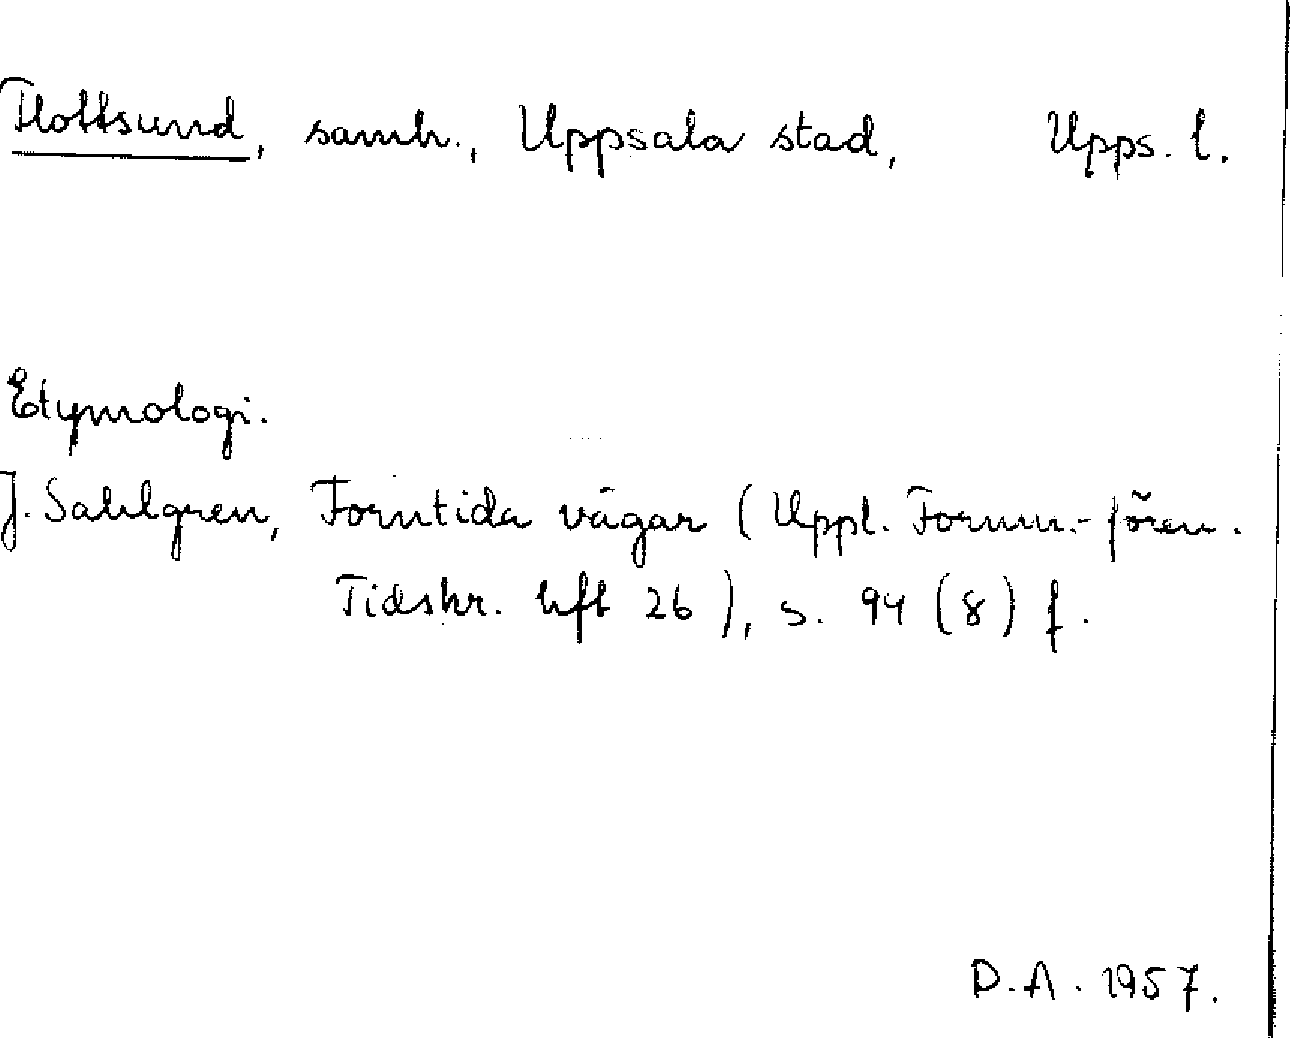 Flottsund, samh., Uppsala stad, Upps. l.
Etymologi.
J. Sahlgren, Forntida vägar (Uppl. Fornm.-fören.
Tidskr. hft 26), s. 94 (8) f.
D.A. 1957.